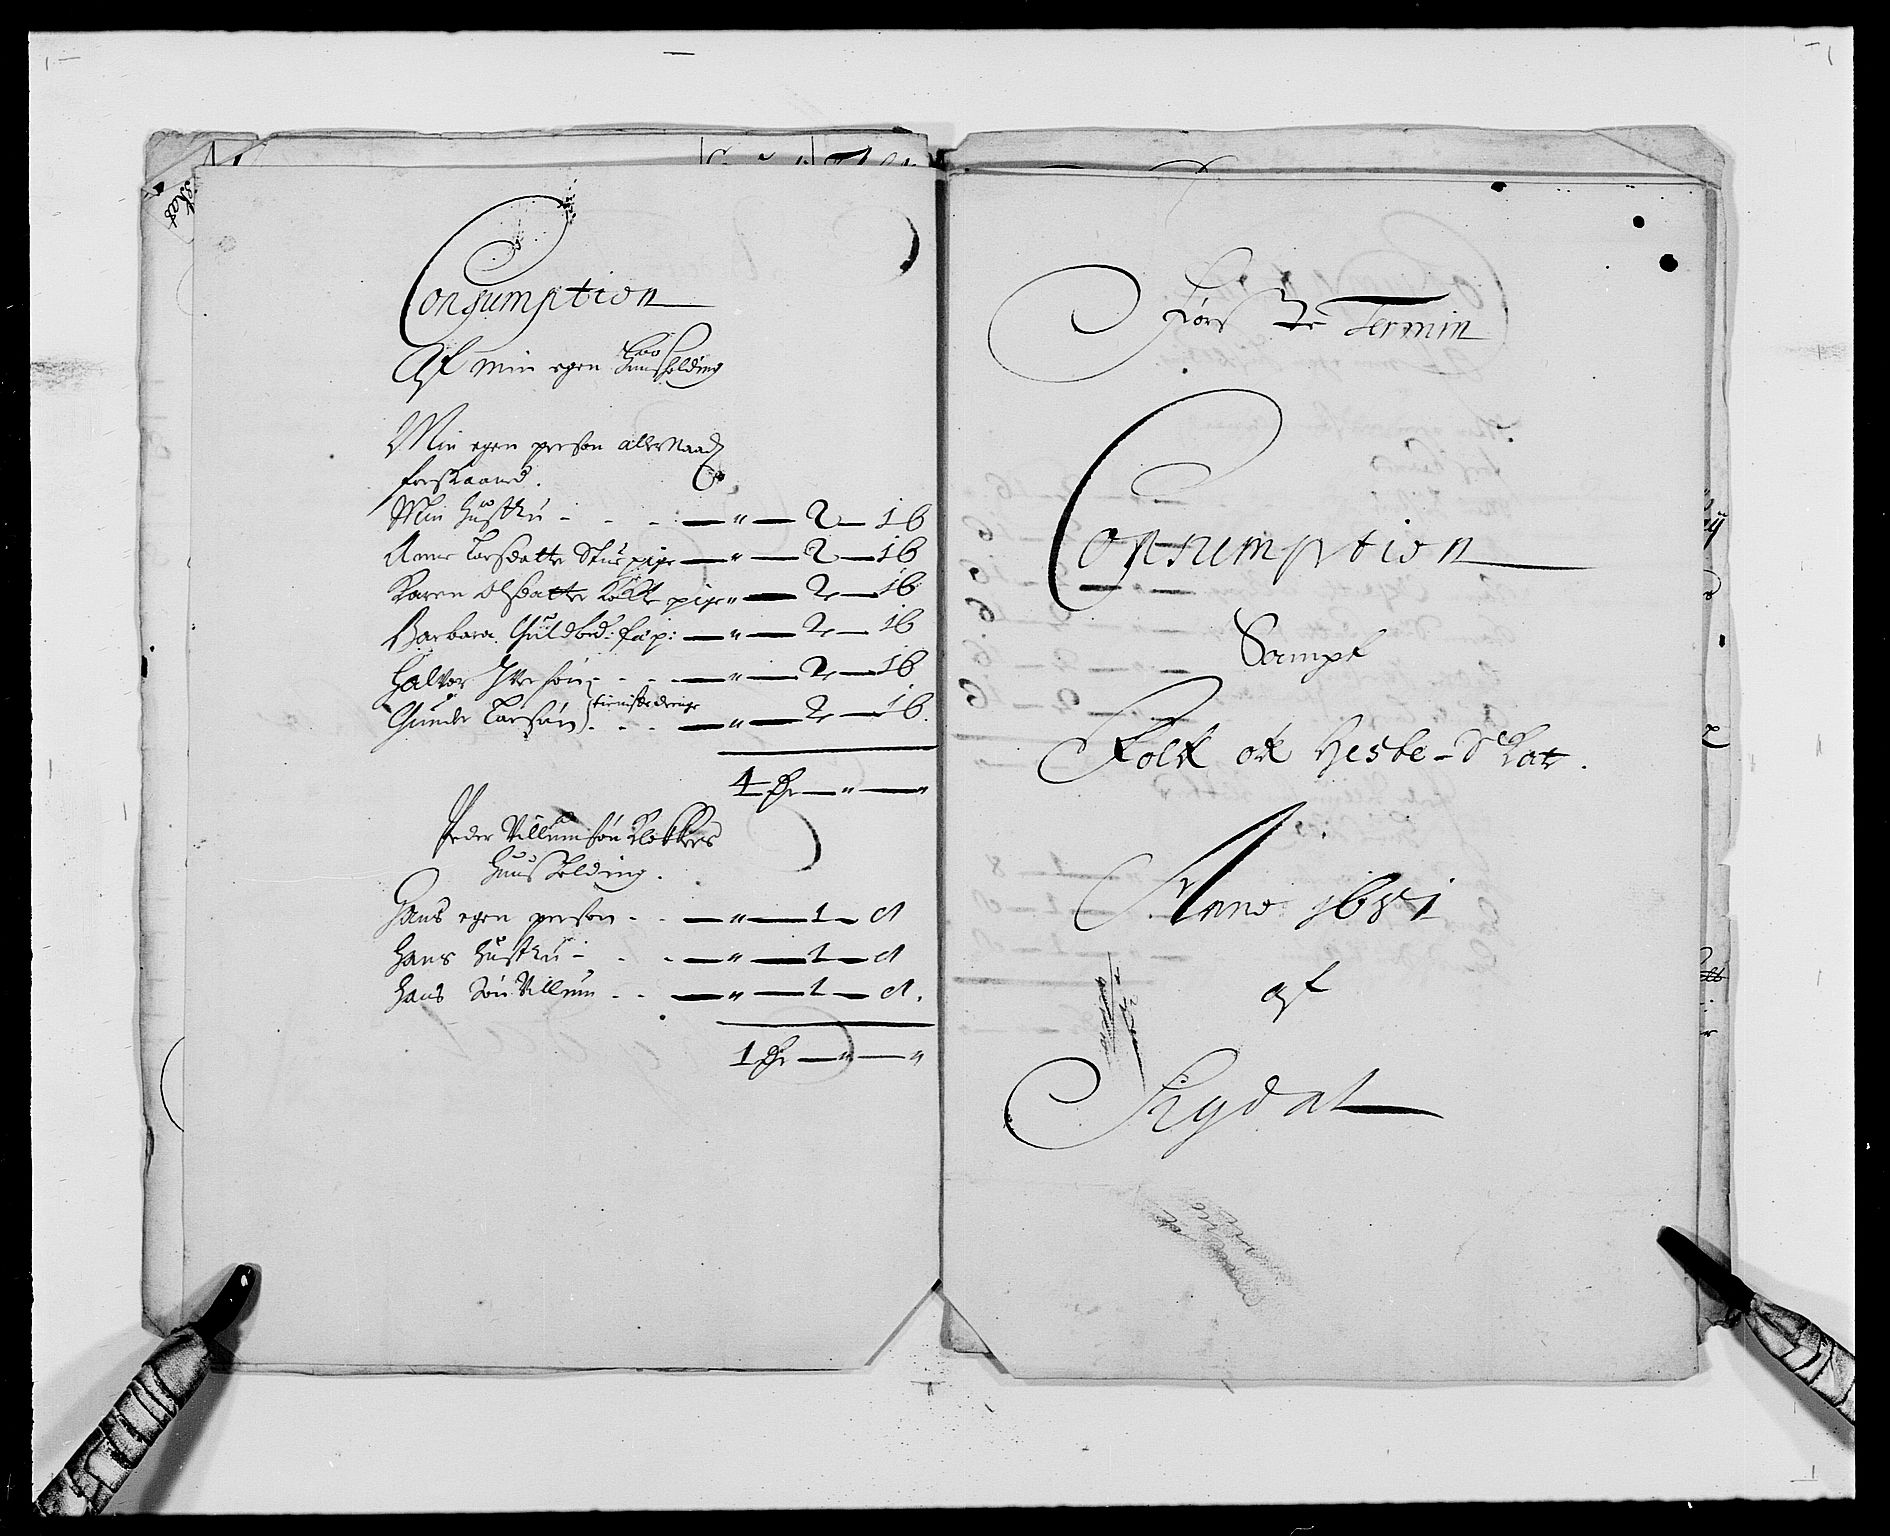 Consumption
Af min egen huusholding
Min egen person aller Naad
forskaand.
Min hustru - - - — " — 2 — 16
Anne Larsdatter Stuepige — " — 2 — 16
Karen Olsdatter pige " — 2 — 16
Barbara Guldbrd: — " — 2 — 16
Halvor Iversøn - - - — " — 2 — 16
Gunder Larsøn tienistedrenge - - - — " — 2 — 16.
4 — " — "
Peder Villumsøn Klokkers
huusholding.
Hans egen person - - — " — 1 — d
Hans hustru - - - — " — 1 — d
Hans Søn Villum - - — " — 1 — d.
1 — " — "
Første Termin
Consumption
Sampt
Folk ok Heste-Skat.
Anno 1681
af
Sigdal